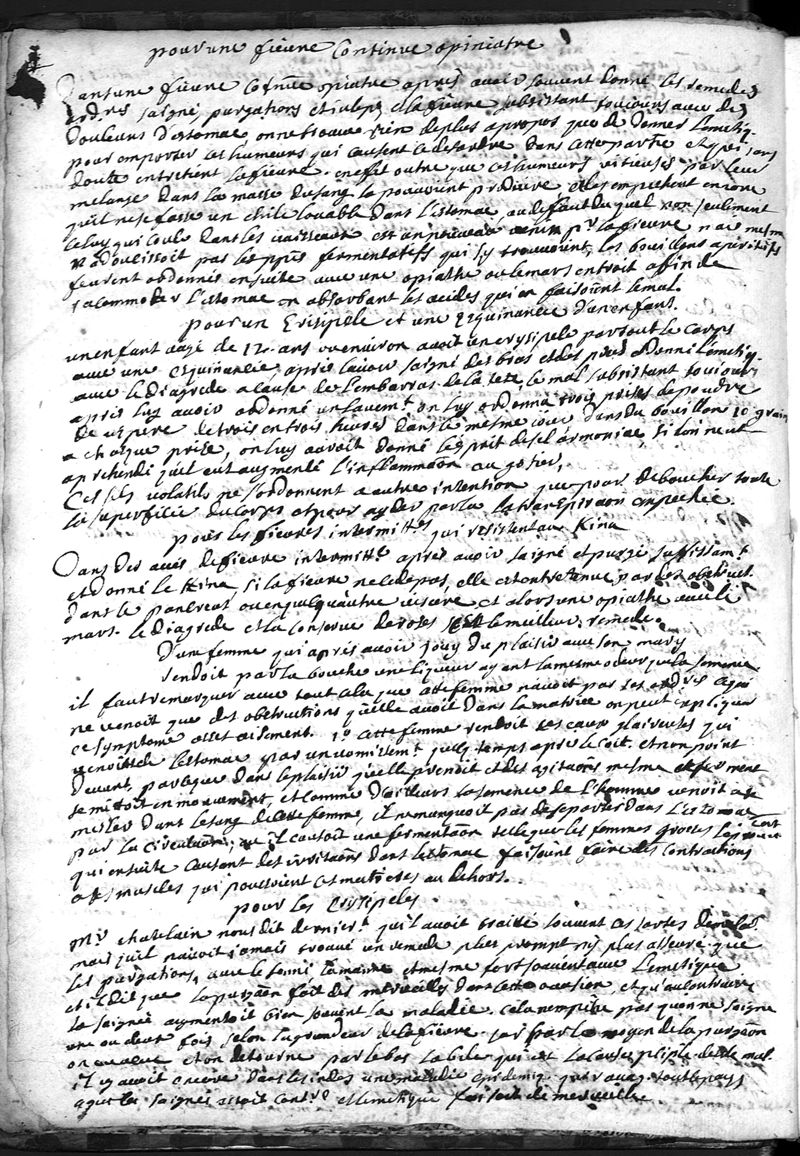 pour une fievre Continue opiniatre
Dans une fievre Cotnüe opiatre apres avoir souvent donné les remedes
ordres saigné purgations et juleps et la fievre subsistant toujours avec des
douleurs d'estomac on ne trouve rien de plus a propos que de donner l'emetiq.
pour emporter les humeurs qui causent ce desordre dans cette partie et qui sans
doute entretient la fievre. en effet outre que ces humeurs vitieuses par leur
melange dans la masse du sang la pouvoient produire elles empechent encore
qu'il ne se fasse un chile louable dans l'estomac, au defaut du quel non seulement
celuy qui coule dans les vaisseaux est un nouveau venin pr la fievre
n'adoulissoit pas les ppes fermentatifs qui s'y trouvoient, les bouillons aperitifs
feurent ordonnés ensuite avec une opiathe ou le mars entroit affin de
racommoder l'estomac en absorbant les acides qui en faisoient le mal.
pour un Erisipele et une esquinancie d'un enfant.
un enfant aagé de 12 ans ou environ avoit un erysipele par tout le corps
avec une esquinancie apres l'avoir saigné des bras et des pieds et donné l'emetiq.
avec le diagrede a cause de l'embarras de la tete, le mal subsistant toujours
apres luy avoir ordonné un lavemt. on luy ordonna trois prises de poudre
de vipere de trois en trois heures dans le mesme jour dans du bouillon 10 grains
a chaque prise, on luy auroit donné l'esprit de sel armoniac si l'on n'eut
aprehendé qu'il eut augmenté l'inflammaon au gosier,
Ces sels volatils ne s'ordonnent a autre intention que pour deboucher toute
la superficie du corps et pour ayder par la la transpiraon empechée.
pour les fievres intermittes qui resistent au Kina
Dans des accés de fievre intermitte apres avoir saigné et purgé suffisamt.
et donné le Kina, si la fievre ne cede pas, elle est entretenue par des obstruct.
dans le pancreas ou en quelqu'autre viscere et alors une opiathe avec le
mars. le diagrede et la conserve de roses est le meilleur remede.
D'une femme qui apres avoir jouy du plaisir avec son mary
rendoit par la bouche une liqueur ayant la mesme odeur que la semence.
il faut remarquer avec tout cela que cette femme n'avoit pas ses ordres
ne venoit que des obstructions qu'elle avoit dans la matrice on peut expliquer
ce symptome asses aisement. 1o. cette femme rendoit ses eaux qui
venoit de l'estomac par un vomissemt. quelq temps apres le coit, et non point
devant, parceque dans le plaisir qu'elle prenoit et des agitaons mesme
se mettoit en mouvement, et comme d'ailleurs la semence de l'homme venoit a se
mesler dans le sang de cette femme, il ne manquoit pas de se porter dans l'estomac
par la circulaon, ou il causoit une fermentaon telle que les femmes grosses
qui ensuite causant des irritaons dans l'estomac faisoient faire des contractions
a ses muscles qui poussoient ces matieres au dehors.
pour les Erisipeles.
Mr. chatelain nous dit derniert. qu'il avoit traitté souvent ces sortes de malad.
mais qu'il n'avoit jamais trouvé un remede plus prompt ny plus asseuré que
les purgations, avec le senné la manne et mesme fort souvent avec l'emetique
et il dit que la purgaon fait des merveilles dans cette occasion, et qu'au contraire
la saignée augmentoit bien souvent la maladie. cela n'empeche pas qu'on ne saigne
une ou deux fois selon la grandeur de la fievre. car par le moyen de la purgaon
on evacue et on detourne par le bas la bile qui est la cause pciple de ce mal.
il y avoit encore dans les indes une maladie epidemiq. tout le pays
a qui la saignée estoit contre et l'emetique faisoit de merveille